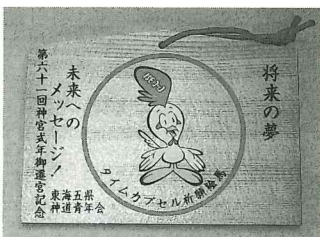 将来の夢
タイムカプセル祈願絵馬
未来への
メッセージ!
第六十一回神宮式年御遷宮記念
東海五県
神道青年会